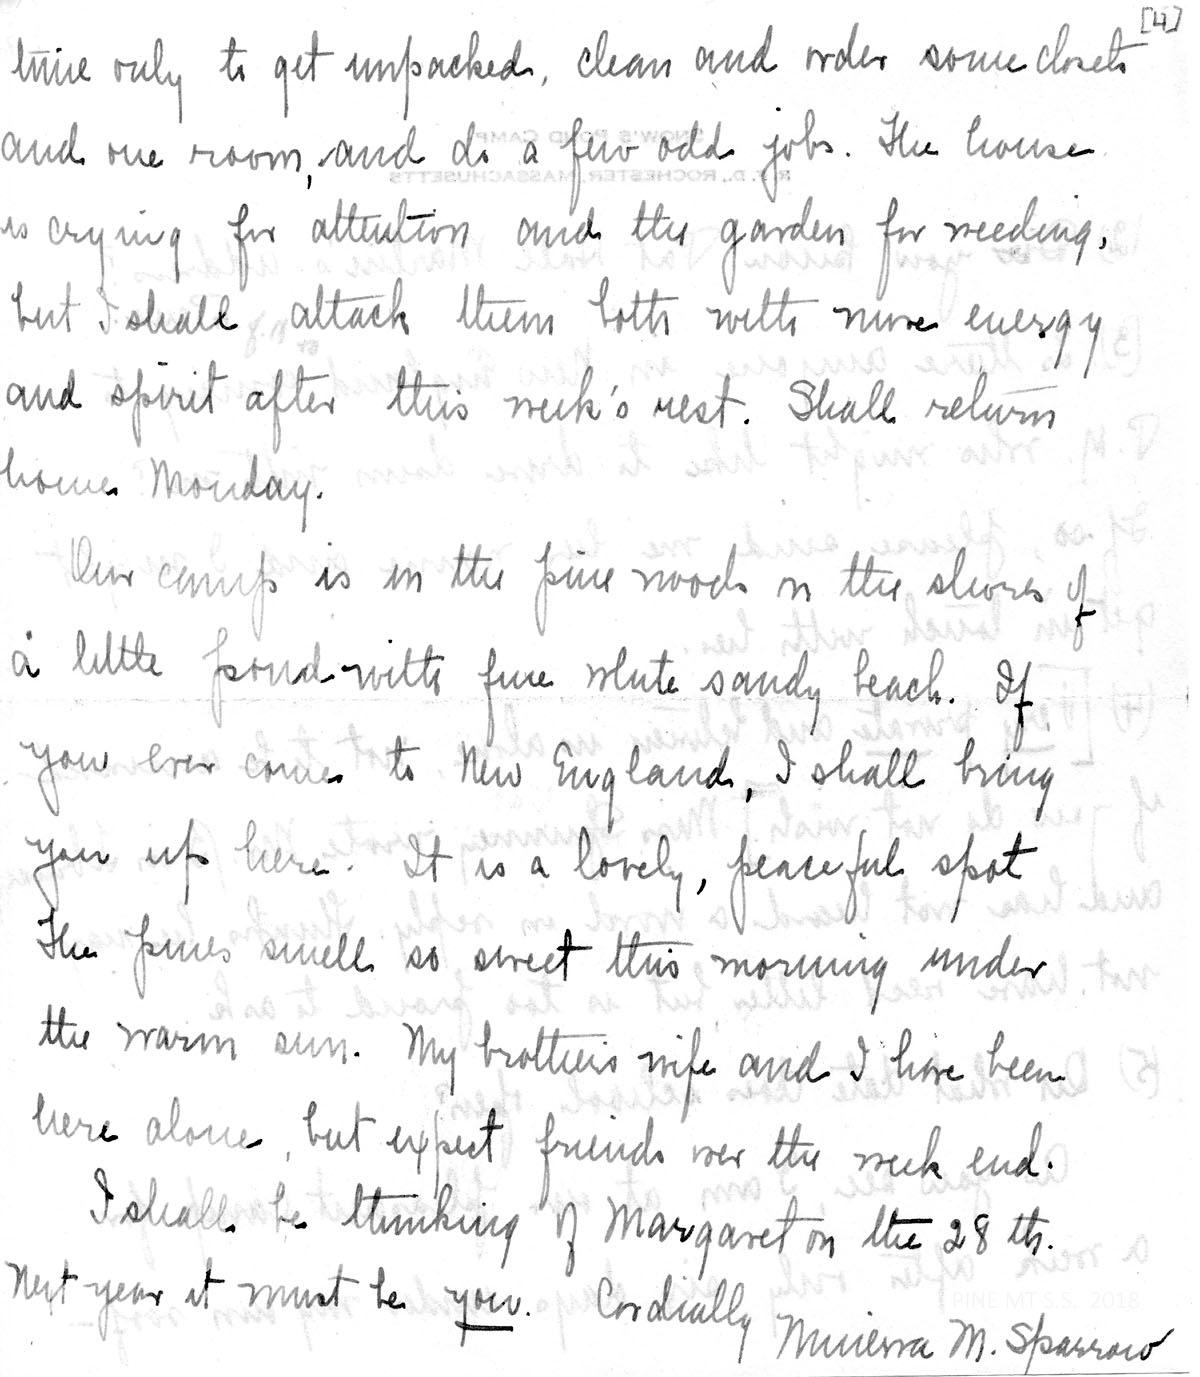 [4]
time only to get unpacked, clean and order some closets
and one room, and do a few odd jobs. The house
SNOW'S POND CAMP
R.F.D., ROCHESTER, MASSACHUSETTS
is crying for attention and the garden for weeding,
but I shall attack them both with more energy
and spirit after this week's rest. Shall return
home Monday.
Our camp is in the pine woods on the shores of
a little pond with fine white sandy beach. If
you ever come to New England, I shall bring
you up here. It is a lovely, peaceful spot
The pines smell so sweet this morning under
the warm sun. My brother's wife and I have been
here alone, but expect friends over the week end.
I shall be thinking of Margaret on the 28 th.
Next year it must be you. Cordially
Minerva M. Sparrow
PINE MT S.S. 2018